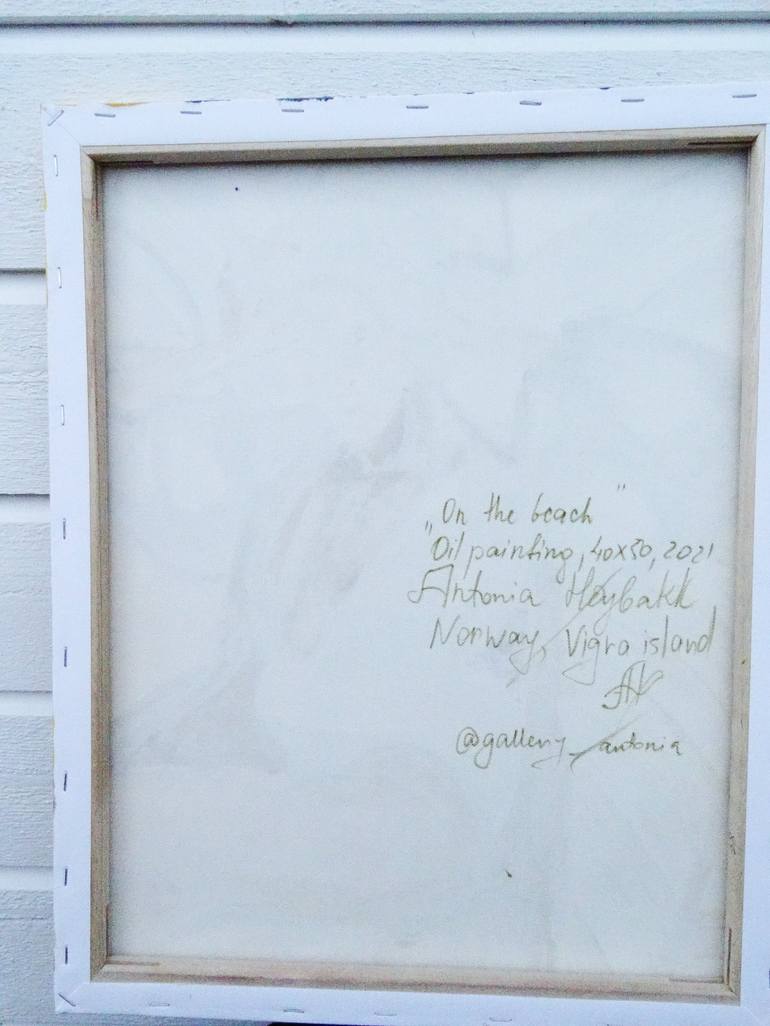 „On the beach"
Oil painting, 40x50, 2021
Antonia Høybakk
Norway, Vigra island
@gallery_antonia